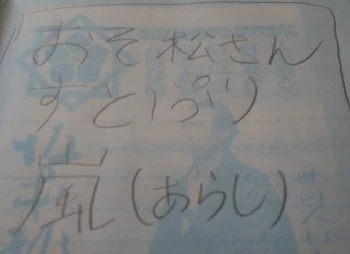 おそ松さん
すとぷり
嵐(あらし)